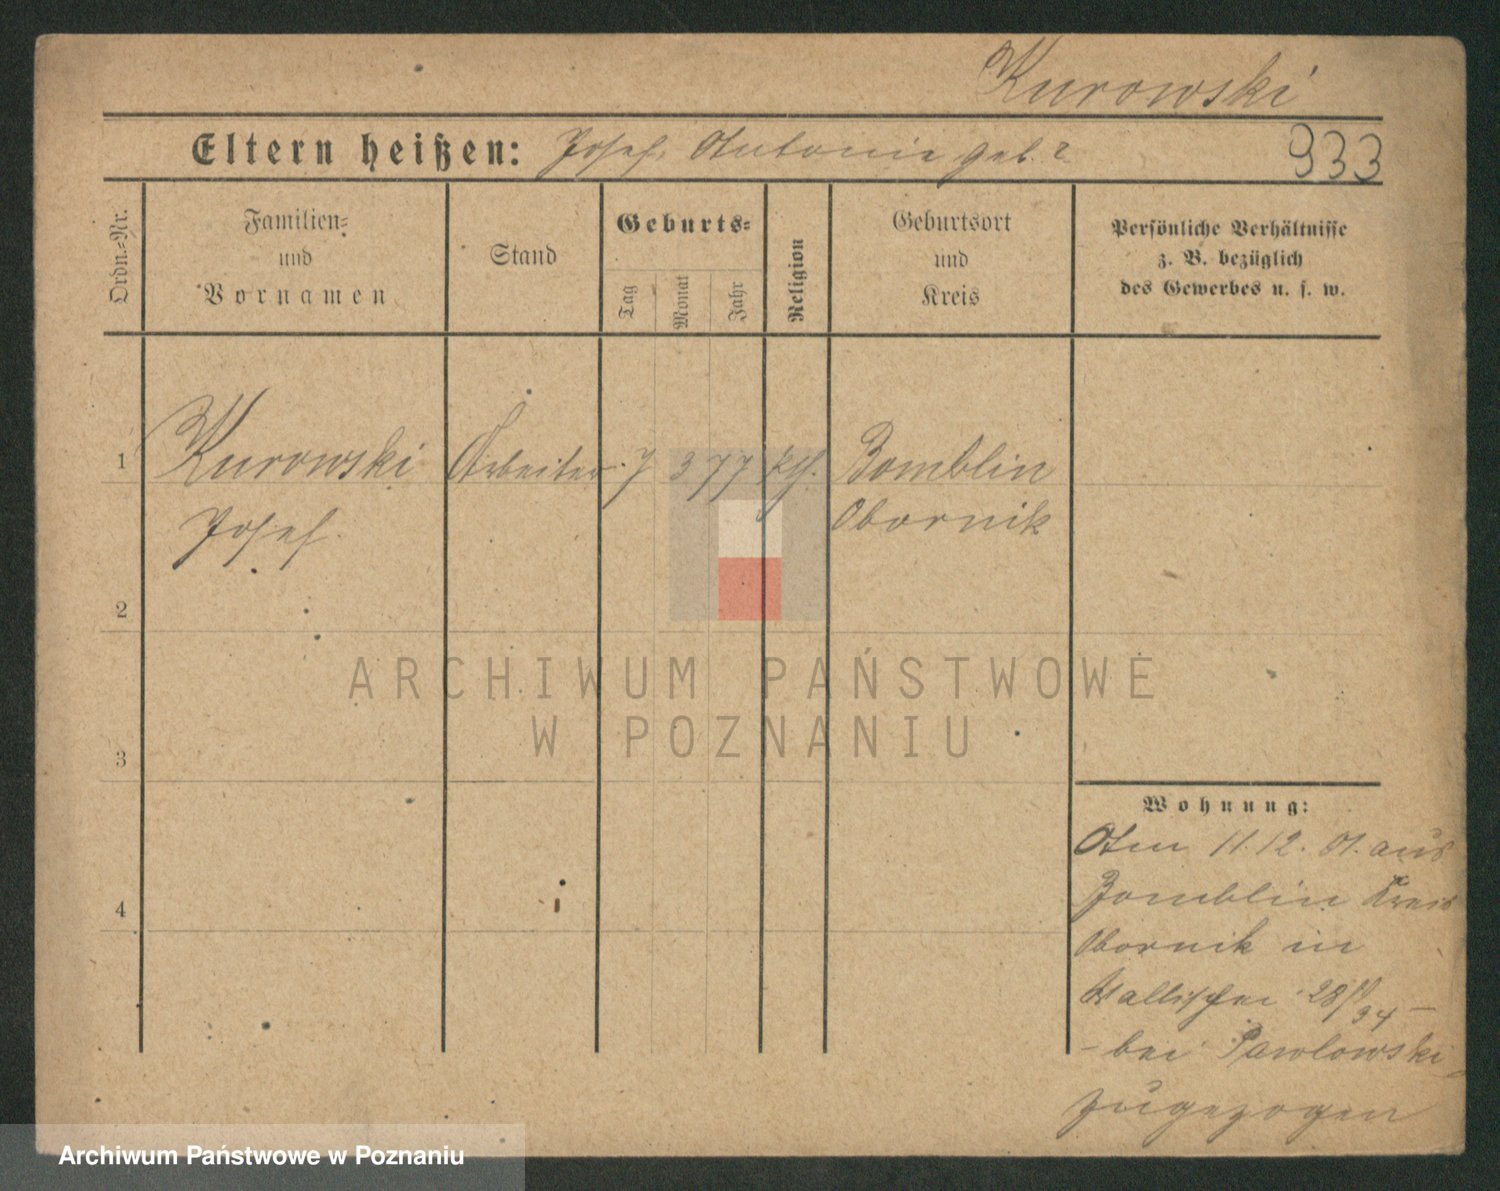 Kurowski
Eltern heißen: Josef, Antonie geb. ?
933
Ordn.=Nr.
Familien=
und
Vornamen
Stand
Geburts=
Tag
Monat
Jahr
Religion
Geburtsort
und
Kreis
Persönliche Verhältnisse
z. B. bezüglich
des Gewerbes u. s. w.
1 Kurowski Arbeiter 7 3 77 kth. Bomblin
Josef. Obornik
2
ARCHIWUM PAŃSTWOWE
W POZNANIU
3
Wohnung:
Am 11.12. 01. aus
Bomblin Kreis
4
Obornik in
Wallischei 28/
34 –
– bei Pawlowski –
zugezogen
Archiwum Państwowe w Poznaniu